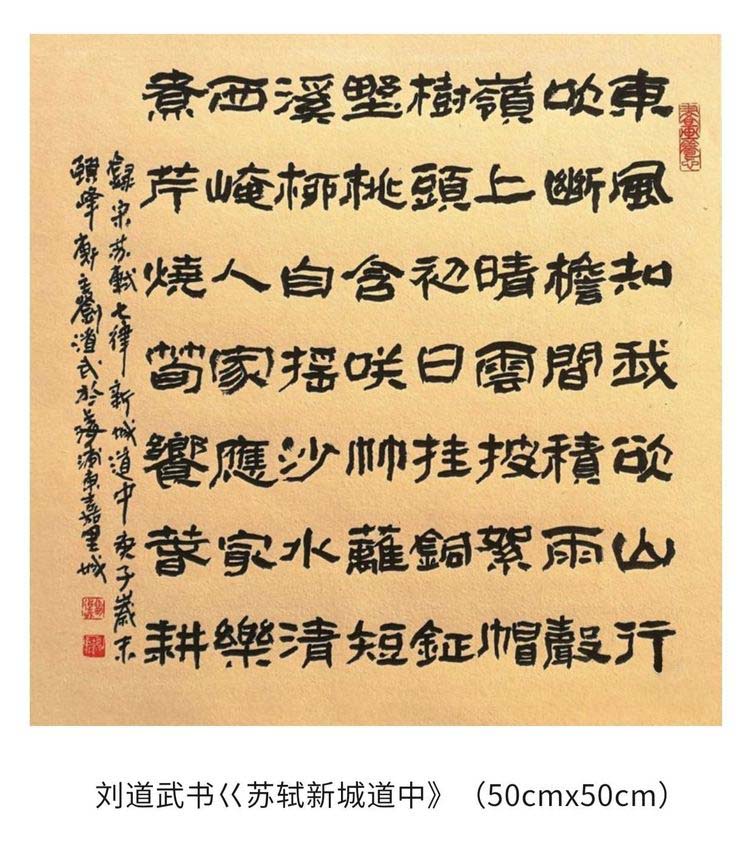 東風知我欲山行
吹斷檐間積雨聲
嶺上晴雲披絮帽
樹頭初日挂銅鉦
墅桃含咲竹蘺短
溪柳自摇沙水清
西崦人家應最樂
煮芹燒筍饗春耕
錄宋苏軾七律新城道中庚子歲末
峰斋主劉道武於海浦東嘉里城
刘道武书巜苏轼新城道中》（50cmx50cm）